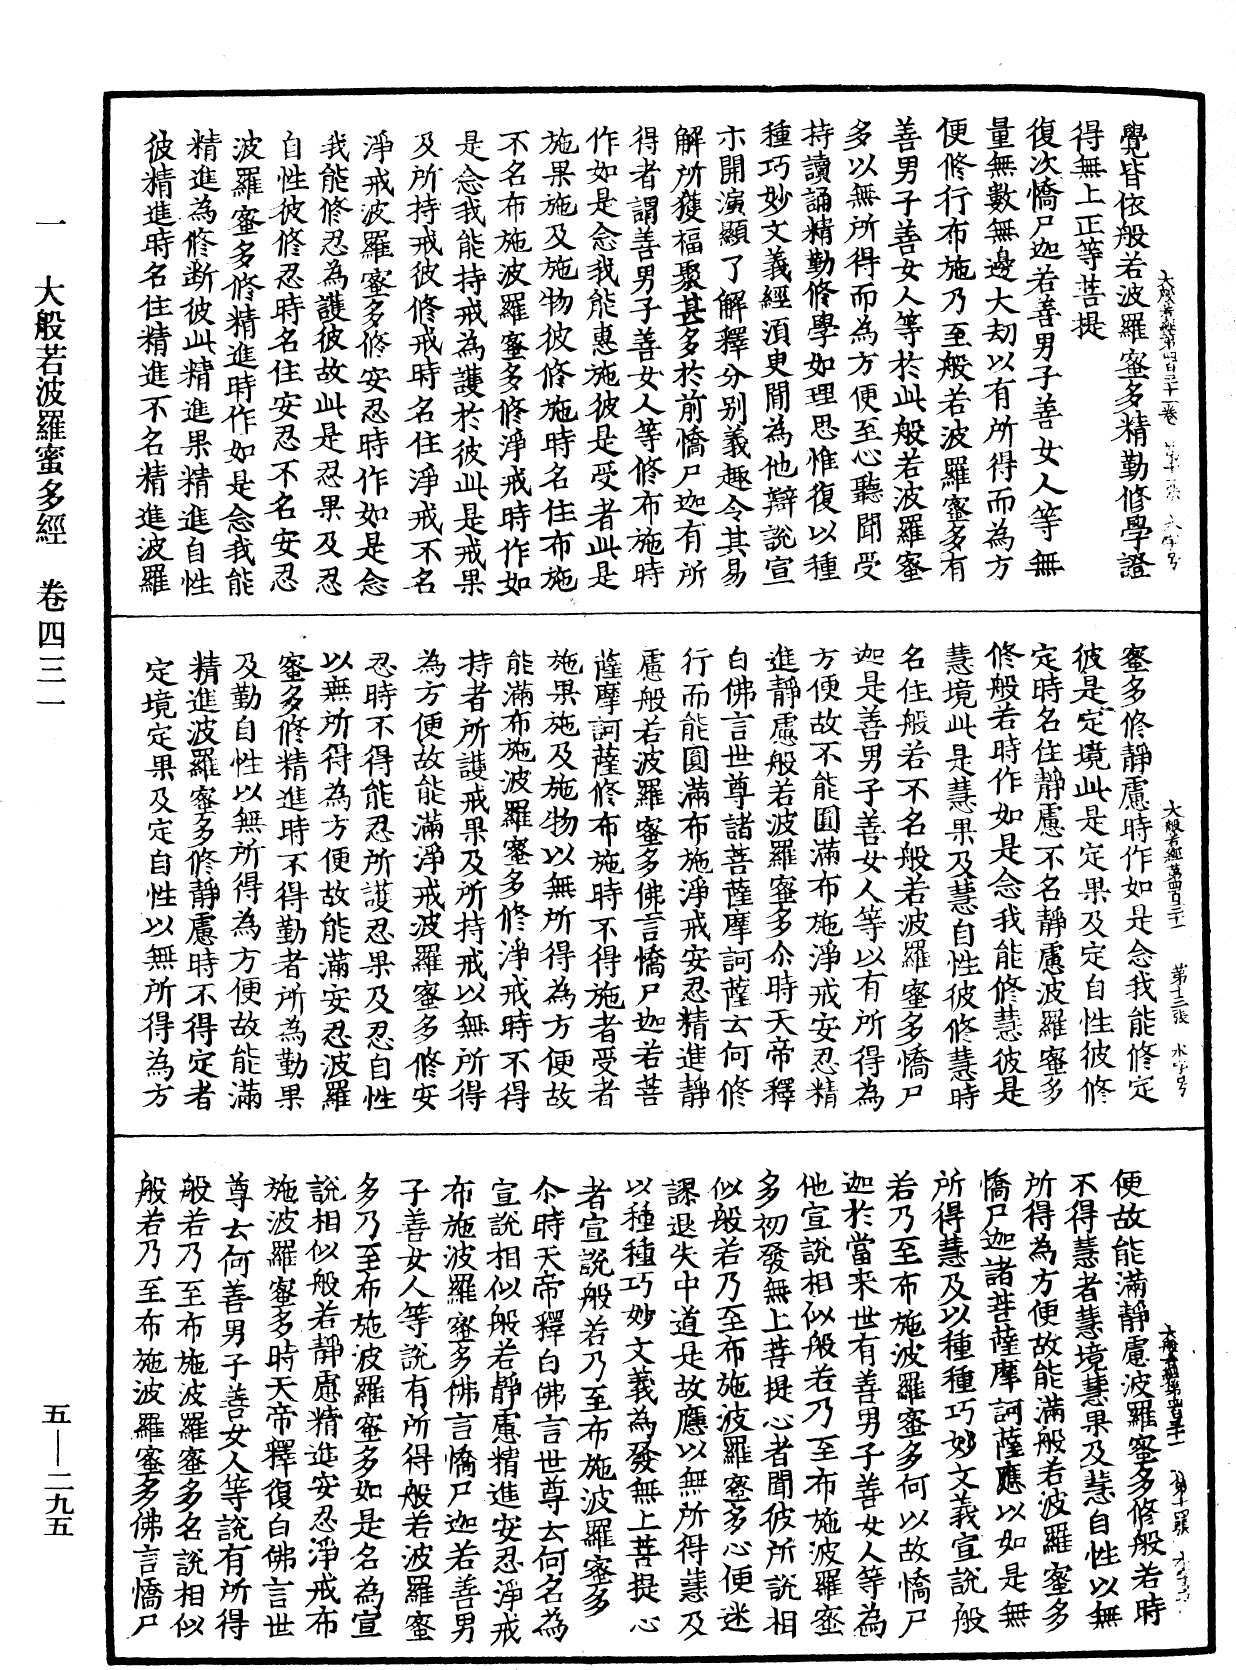 覺皆依般若波羅蜜多精勤修學證
得無上正等菩提
復次憍尸迦若善男子善女人等無
量無數無邊大劫以有所得而為方
便修行布施乃至般若波羅蜜多有
善男子善女人等於此般若波羅蜜
多以無所得而為方便至心聽聞受
持讀誦精勤修學如理思惟復以種
種巧妙文義經須臾間為他辯說宣
示開演顯了解釋分別義趣令其易
解所獲福聚甚多於前憍尸迦有所
得者謂善男子善女人等修布施時
作如是念我能惠施彼是受者此是
施果施及施物彼修施時名住布施
不名布施波羅蜜多修淨戒時作如
是念我能持戒為護於彼此是戒果
及所持戒彼修戒時名住淨戒不名
淨戒波羅蜜多修安忍時作如是念
我能修忍為護彼故此是忍果及忍
自性彼修忍時名住安忍不名安忍
波羅蜜多修精進時作如是念我能
精進為修斷彼此精進果精進自性
彼精進時名住精進不名精進波羅
大般若經第四百三十一卷
蜜多修靜慮時作如是念我能修定
彼是定境此是定果及定自性彼修
定時名住靜慮不名靜慮波羅蜜多
修般若時作如是念我能修慧彼是
慧境此是慧果及慧自性彼修慧時
名住般若不名般若波羅蜜多憍尸
迦是善男子善女人等以有所得為
方便故不能圓滿布施淨戒安忍精
進靜慮般若波羅蜜多尒時天帝釋
白佛言世尊諸菩薩摩訶薩云何修
行而能圓滿布施淨戒安忍精進靜
慮般若波羅蜜多佛言憍尸迦若菩
薩摩訶薩修布施時不得施者受者
施果施及施物以無所得為方便故
能滿布施波羅蜜多修淨戒時不得
持者所護戒果及所持戒以無所得
為方便故能滿淨戒波羅蜜多修安
忍時不得能忍所護忍果及忍自性
以無所得為方便故能滿安忍波羅
蜜多修精進時不得勤者所為勤果
及勤自性以無所得為方便故能滿
精進波羅蜜多修靜慮時不得定者
定境定果及定自性以無所得為方
大般若經第四百三十一 第十三張
便故能滿靜慮波羅蜜多修般若時
不得慧者慧境慧果及慧自性以無
所得為方便故能滿般若波羅蜜多
憍尸迦諸菩薩摩訶薩應以如是無
所得慧及以種種巧妙文義宣說般
若乃至布施波羅蜜多何以故憍尸
迦於當来世有善男子善女人等為
他宣說相似般若乃至布施波羅蜜
多初發無上菩提心者聞彼所說相
似般若乃至布施波羅蜜多心便迷
謬退失中道是故應以無所得慧及
以種種巧妙文義為發無上菩提心
者宣說般若乃至布施波羅蜜多
尒時天帝釋白佛言世尊云何名為
宣說相似般若靜慮精進安忍淨戒
布施波羅蜜多佛言憍尸迦若善男
子善女人等說有所得般若波羅蜜
多乃至布施波羅蜜多如是名為宣
說相似般若靜慮精進安忍淨戒布
施波羅蜜多時天帝釋復白佛言世
尊云何善男子善女人等說有所得
般若乃至布施波羅蜜多名說相似
般若乃至布施波羅蜜多佛言憍尸
一 大般若波羅蜜多經 卷四三一
五—二九五